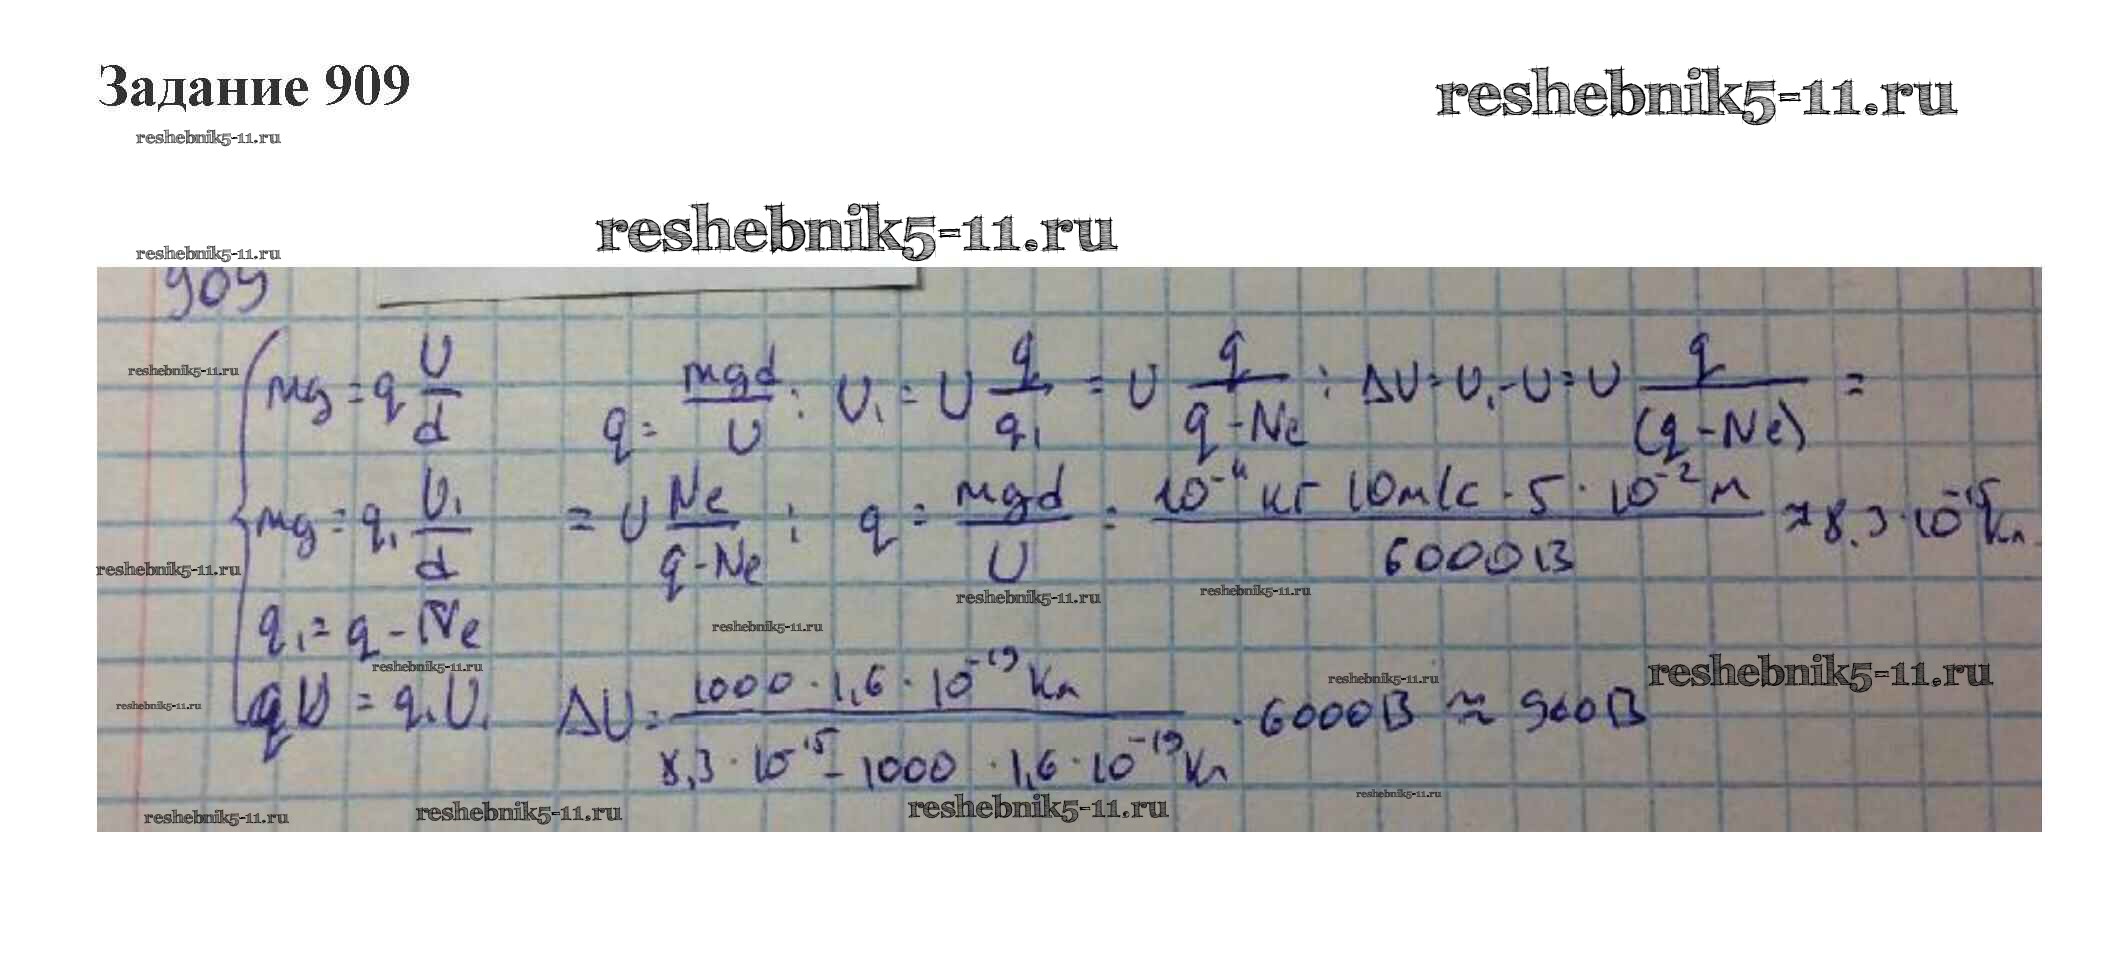 Задание 909
reshebnik5-11.ru
reshebnik5-11.ru
reshebnik5-11.ru
reshebnik5-11.ru
909
mg = q U/d   q = mgd/U ; U₁ = U q/q₁ = U q/(q-Ne) ; ΔU = U₁-U = U q/(q-Ne) =
reshebnik5-11.ru
mg = q₁ U₁/d   = U Ne/(q-Ne) ; q = mgd/U = 10⁻¹¹ кг 10м/с · 5 · 10⁻² м/6000В ≈ 8,3·10⁻¹⁵Кл
reshebnik5-11.ru
reshebnik5-11.ru
reshebnik5-11.ru
q₁ = q - Ne
reshebnik5-11.ru
reshebnik5-11.ru
reshebnik5-11.ru
reshebnik5-11.ru
reshebnik5-11.ru
qU = q₁U₁   ΔU = 1000 · 1,6 · 10⁻¹⁹ Кл/8,3 · 10¹⁵ - 1000 · 1,6 · 10⁻¹⁹ Кл · 6000В ≈ 960В
reshebnik5-11.ru
reshebnik5-11.ru
reshebnik5-11.ru
reshebnik5-11.ru
reshebnik5-11.ru